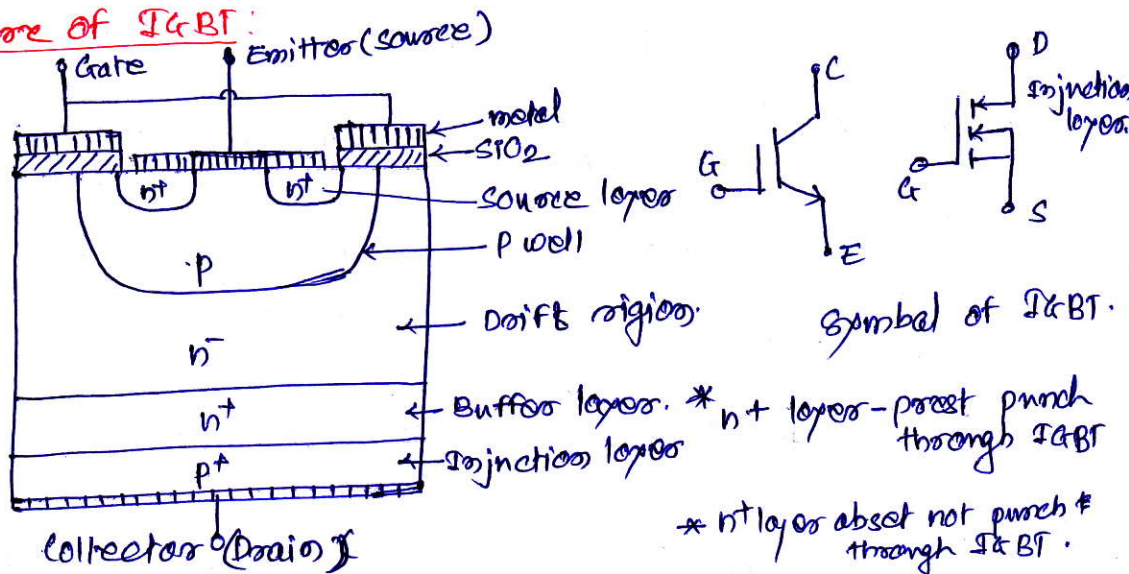 ure of IGBT:
Gate
Emitter (source)
metal
SiO2
n+
n+
source layer
P well
p
Drift rigion.
n-
n+
Buffer layer.
p+
Injnction layer
Collector (Drain)
C
G
E
D
Injnction
layer.
G
S
Symbal of IGBT.
* n+ layer - prest punch
through IGBT
* n+ layer abset not punch *
through IGBT.